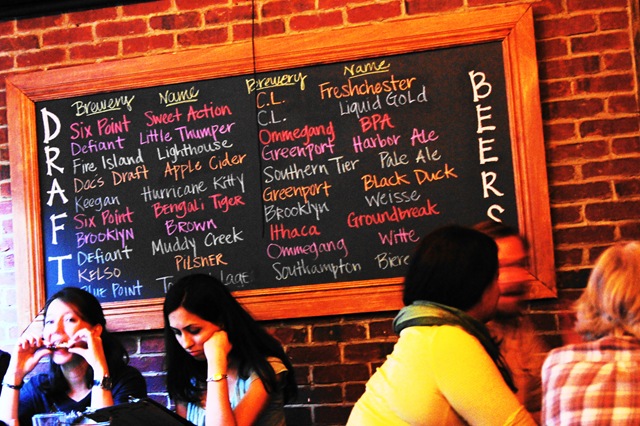 DRAFT
Brewery Name
Six Point Sweet Action
Defiant Little Thumper
Fire Island Lighthouse
Docs Draft Apple Cider
Keegan Hurricane Kitty
Six Point Bengali Tiger
Brooklyn Brown
Defiant Muddy Creek
KELSO PILSNER
Blue Point
Brewery Name
C.L. Freshchester
C.L. Liquid Gold
Ommegang BPA
Greenport Harbor Ale
Southern Tier Pale Ale
Greenport Black Duck
Brooklyn Weisse
Ithaca Groundbreak
Ommegang Witte
Southampton Biere
BEERS